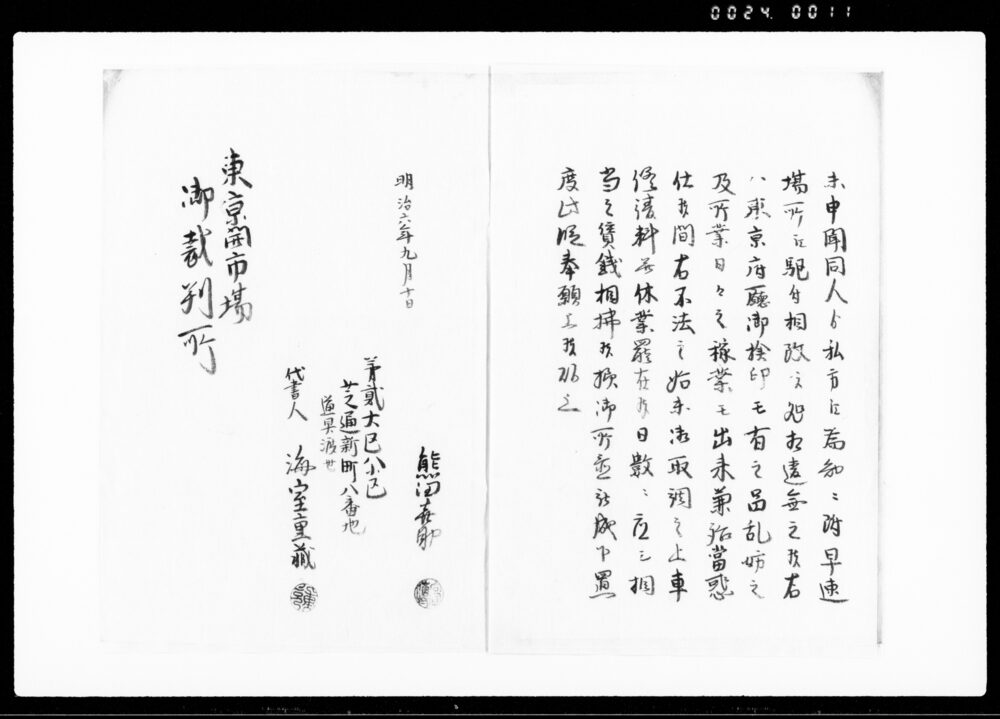 0024 0011
末申聞同人ゟ私方江為知ニ附早速
場所江駈付相改候処相違無之候右
ハ東京府廳御検印モ有之品乱妨之
及所業日々之稼業モ出来兼殆當惑
仕候間右不法之始末御取調之上車
修復料並休業罷在候日数ニ応シ相
当之賃銭相拂候様御所置被成下置
度此段奉願上候以上
明治六年九月十日
熊田喜助
第貳大区八小区
芝通新町八番地
道具渡世
代書人 海室重蔵
東京開市場
御裁判所